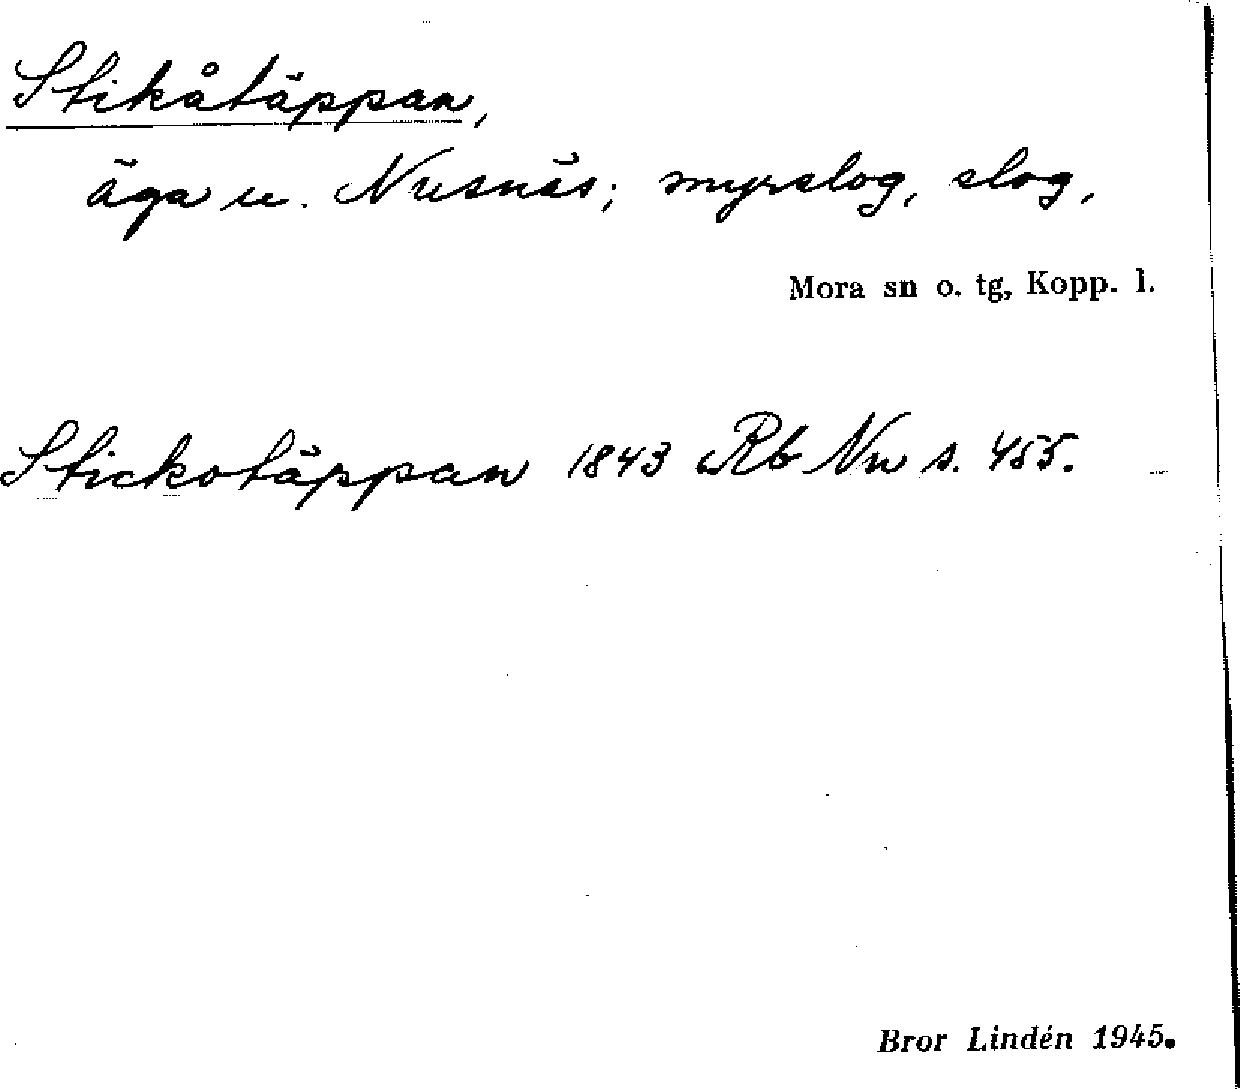 Stikåtäppan,
äga u. Nusnäs; myrslog, slog,
Mora sn o. tg, Kopp. l.
Stickotäppan 1843 Rb Nu s. 455.
Bror Lindén 1945.